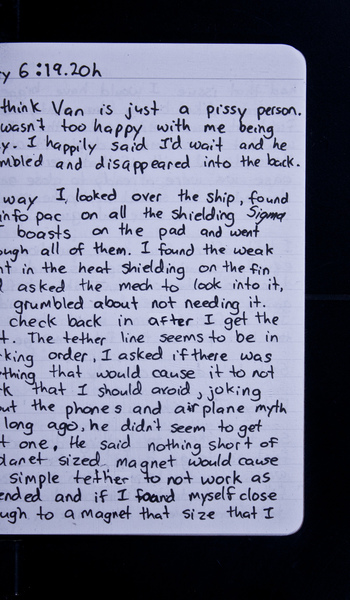 y 6:19.20h
think Van is just a pissy person.
wasn't too happy with me being
y. I happily said I'd wait and he
mbled and disappeared into the back.
way I looked over the ship, found
info pac on all the shielding Sigma
boasts on the pad and went
ough all of them. I found the weak
nt in the heat shielding on the fin
asked the mech to look into it,
grumbled about not needing it.
check back in after I get the
t. The tether line seems to be in
king order, I asked if there was
ything that would cause it to not
k that I should avoid, joking
out the phones and airplane myth
long ago, he didn't seem to get
t one. He said nothing short of
planet sized magnet would cause
simple tether to not work as
ended and if I found myself close
ugh to a magnet that size that I